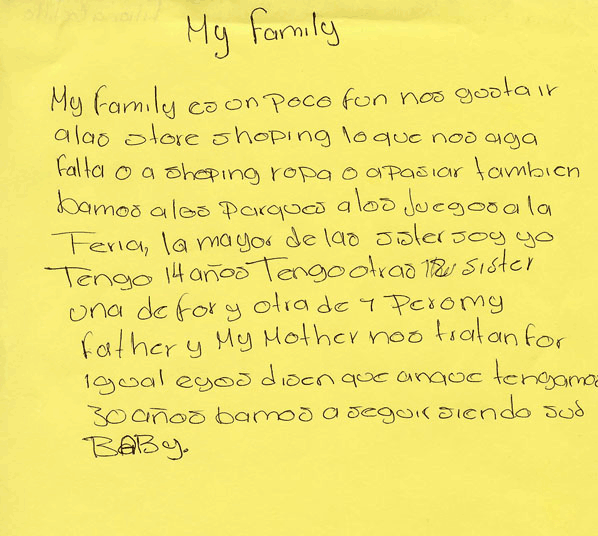 My Family
My family es un poco fun nos gusta ir
a las store shoping lo que nos aiga
falta o a shoping ropa o a pasiar tambien
bamos a los parques a los juegos a la
Feria, la mayor de las sister soy yo
Tengo 14 años Tengo otras sister
una de for y otra de 7 Pero my
father y My Mother nos tratan for
igual eyos disen que anque tengamos
30 años bamos a seguir siendo sus
BABy.